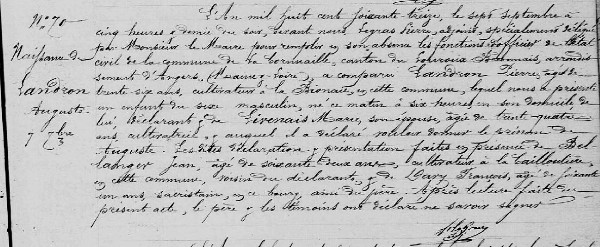 N° 70
Naissance de
Landron
Auguste
7 7bre
L'An mil huit cent soixante treize, le sept septembre à
cinq heures & demie du soir, devant nous, Legras Pierre, adjoint, spécialement délégué
par Monsieur le Maire pour remplir en son absence les fonctions d'officier de l'état
civil de la commune de la Cornuaille, canton du Louroux Béconnais, arrondis
sement d'Angers, (Maine & Loire), a comparu Landron Pierre, âgé de
trente six ans, cultivateur à la en cette commune, lequel nous a présenté
un enfant du sexe masculin, né ce matin à six heures, en son domicile de
lui déclarant, & de Marie, son épouse, âgée de quatre
ans, cultivatrice, & auquel il a déclaré vouloir donner le prénom de
Auguste. Les dites déclaration & présentation faites en présence de Bel
langer Jean, âgé de soixante deux ans, cultivateur à la
en cette commune, voisin du déclarant, & de François, âgé de soixante
un ans, sacristain, en ce bourg, ami du père. Après lecture faite du
présent acte, le père & les témoins ont déclaré ne savoir signer